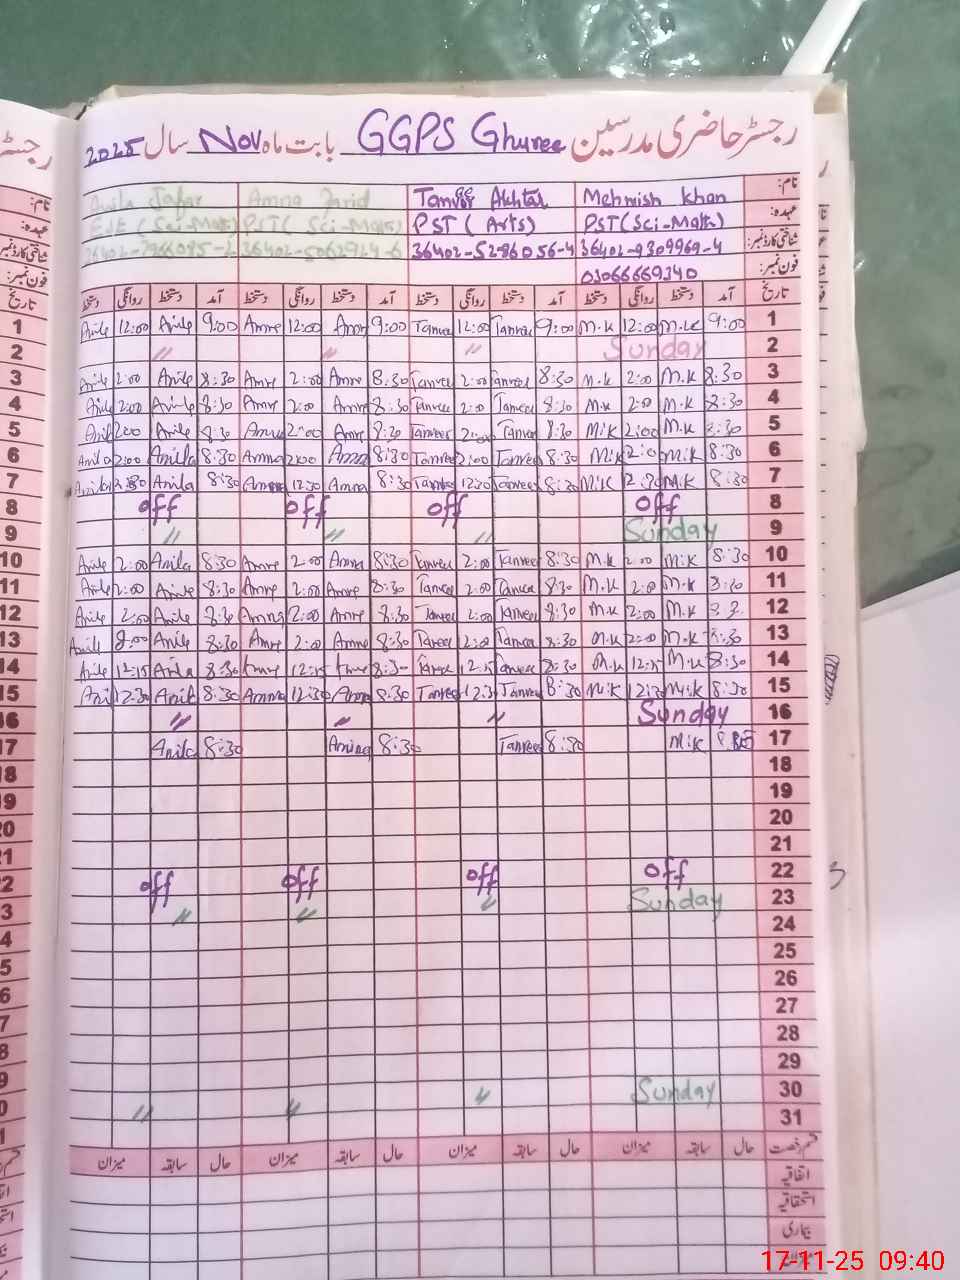 رجسٹر حاضری مدرسین GGPS Ghuree بابت ماہ Nov سال 2025
نام: Mehnish Khan Tanveer Akhtar Amna Anila
عہدہ: PST (Sci-Math) PST (Arts) PST (Sci-Math) (Sci-Math)
شناختی کارڈ نمبر: 36402-5286056-4
فون نمبر: 03066669340
تاریخ آمد دستخط روانگی دستخط آمد دستخط روانگی دستخط آمد دستخط روانگی دستخط آمد دستخط روانگی دستخط
1 9:00 M.K 12:00 M.K 9:00 Tanvee 12:00 Tanvee 9:00 Amne 12:00 Amne 9:00 Anile 12:00 Anile
2 Sunday 〃 〃 〃
3 8:30 M.K 2:00 M.K 8:30 Tanvee 2:00 Tanvee 8:30 Amne 2:00 Amne 8:30 Anile 2:00 Anile
4 8:30 M.K 2:00 M.K 8:30 Tanvee 2:00 Tanvee 8:30 Amne 2:00 Amne 8:30 Anile 2:00 Anile
5 8:30 M.K 2:00 M.K 8:30 Tanvee 2:00 Tanvee 8:30 Amne 2:00 Amne 8:30 Anile 2:00 Anil
6 8:30 M.K 2:00 M.K 8:30 Tanvee 2:00 Tanvee 8:30 Amna 2:00 Amna 8:30 Anila 2:00 Anila
7 8:30 M.K 12:30 M.K 8:30 Tanvee 12:30 Tanvee 8:30 Amna 12:30 Amna 8:30 Anila Anila
8 off off off off
9 Sunday 〃 〃 〃
10 8:30 M.K 2:00 M.K 8:30 Tanvee 2:00 Tanvee 8:30 Amna 2:00 Amne 8:30 Anila 2:00 Anile
11 8:30 M.K 2:00 M.K 8:30 Tanvee 2:00 Tanvee 8:30 Amne 2:00 Amne 8:30 Anile 2:00 Anile
12 M.K 2:00 M.K 8:30 Tanvee 2:00 Tanvee 8:30 Amne 2:00 Amna 8:30 Anile 2:00 Anile
13 8:30 M.K 2:00 M.K 8:30 Tanvee 2:00 Tanvee 8:30 Amne 2:00 Amne 8:30 Anile Anile
14 8:30 M.K 12:15 M.K 8:30 Tanvee 12:15 Tanvee 8:30 Amne 12:15 Amne 8:30 Anila 12:15 Anile
15 8:30 M.K 12:30 M.K 8:30 Tanvee 12:30 Tanvee 8:30 Amna 12:30 Amna 8:30 Anila 12:30 Ani
16 Sunday 〃 〃 〃
17 M.K 8:30 Tanvee 8:30 Amna 8:30 Anila
18
19
20
21
22 off off off off
23 Sunday 〃 〃 〃
24
25
26
27
28
29
30 Sunday 〃 〃 〃
31
قسم رخصت حال سابقہ میزان حال سابقہ میزان حال سابقہ میزان حال سابقہ میزان
اتفاقیہ
استحقاقیہ
بیماری
17-11-25 09:40